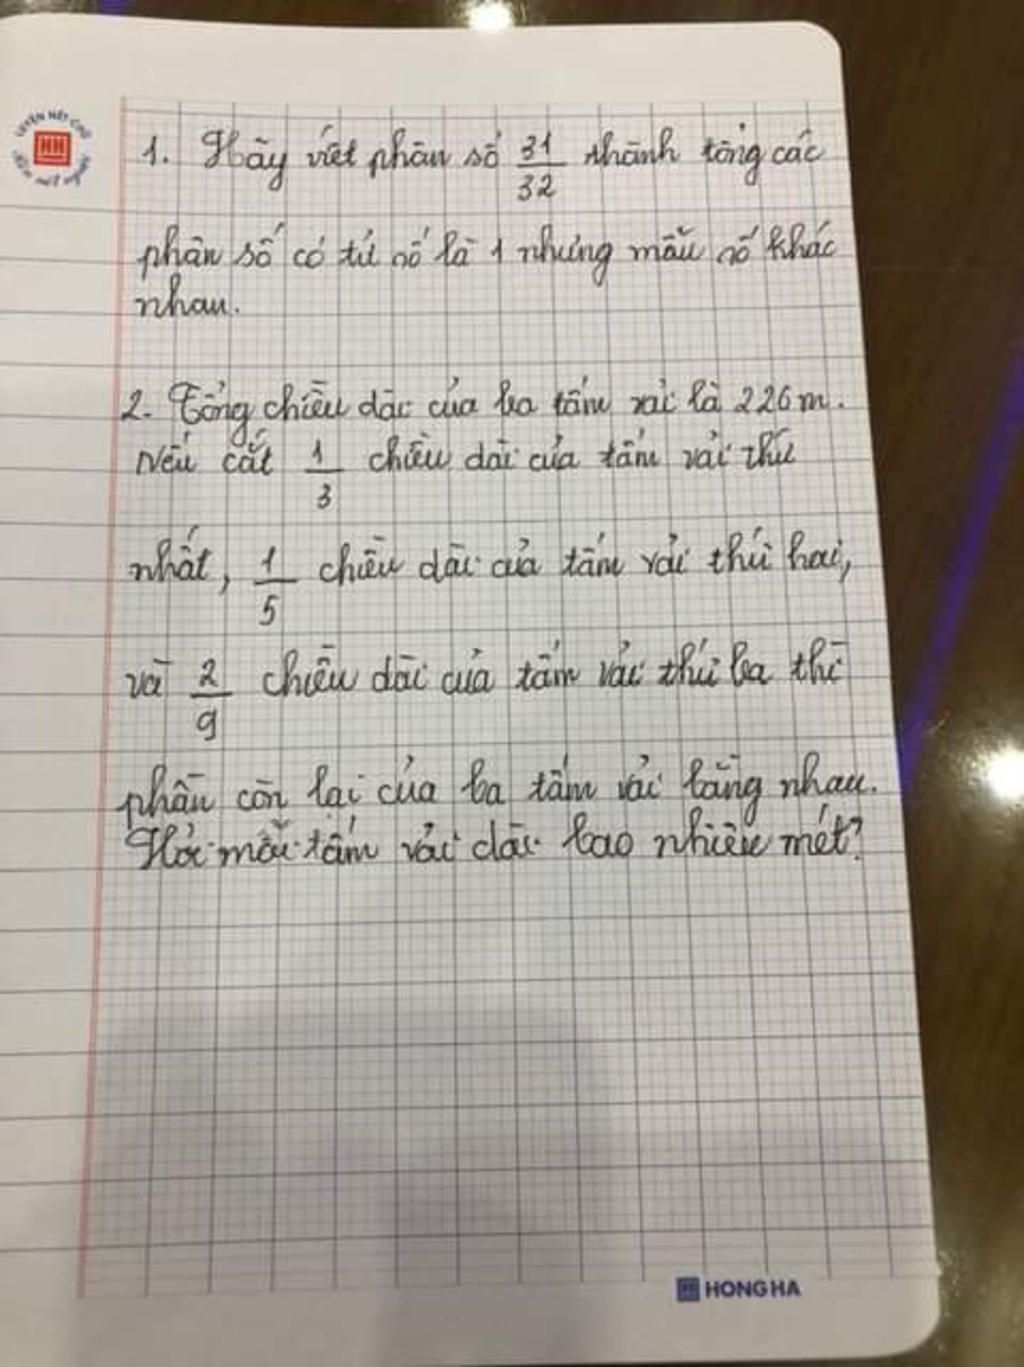 LUYỆN NÉT CHỮ
HH
1. Hãy viết phân số 31/32 thành tổng các
phân số có tử số là 1 nhưng mẫu số khác
nhau.
2. Tổng chiều dài của ba tấm vải là 226m.
Nếu cắt 1/3 chiều dài của tấm vải thứ
nhất, 1/5 chiều dài của tấm vải thứ hai,
và 2/9 chiều dài của tấm vải thứ ba thì
phần còn lại của ba tấm vải bằng nhau.
Hỏi mỗi tấm vải dài bao nhiêu mét?
HONG HA